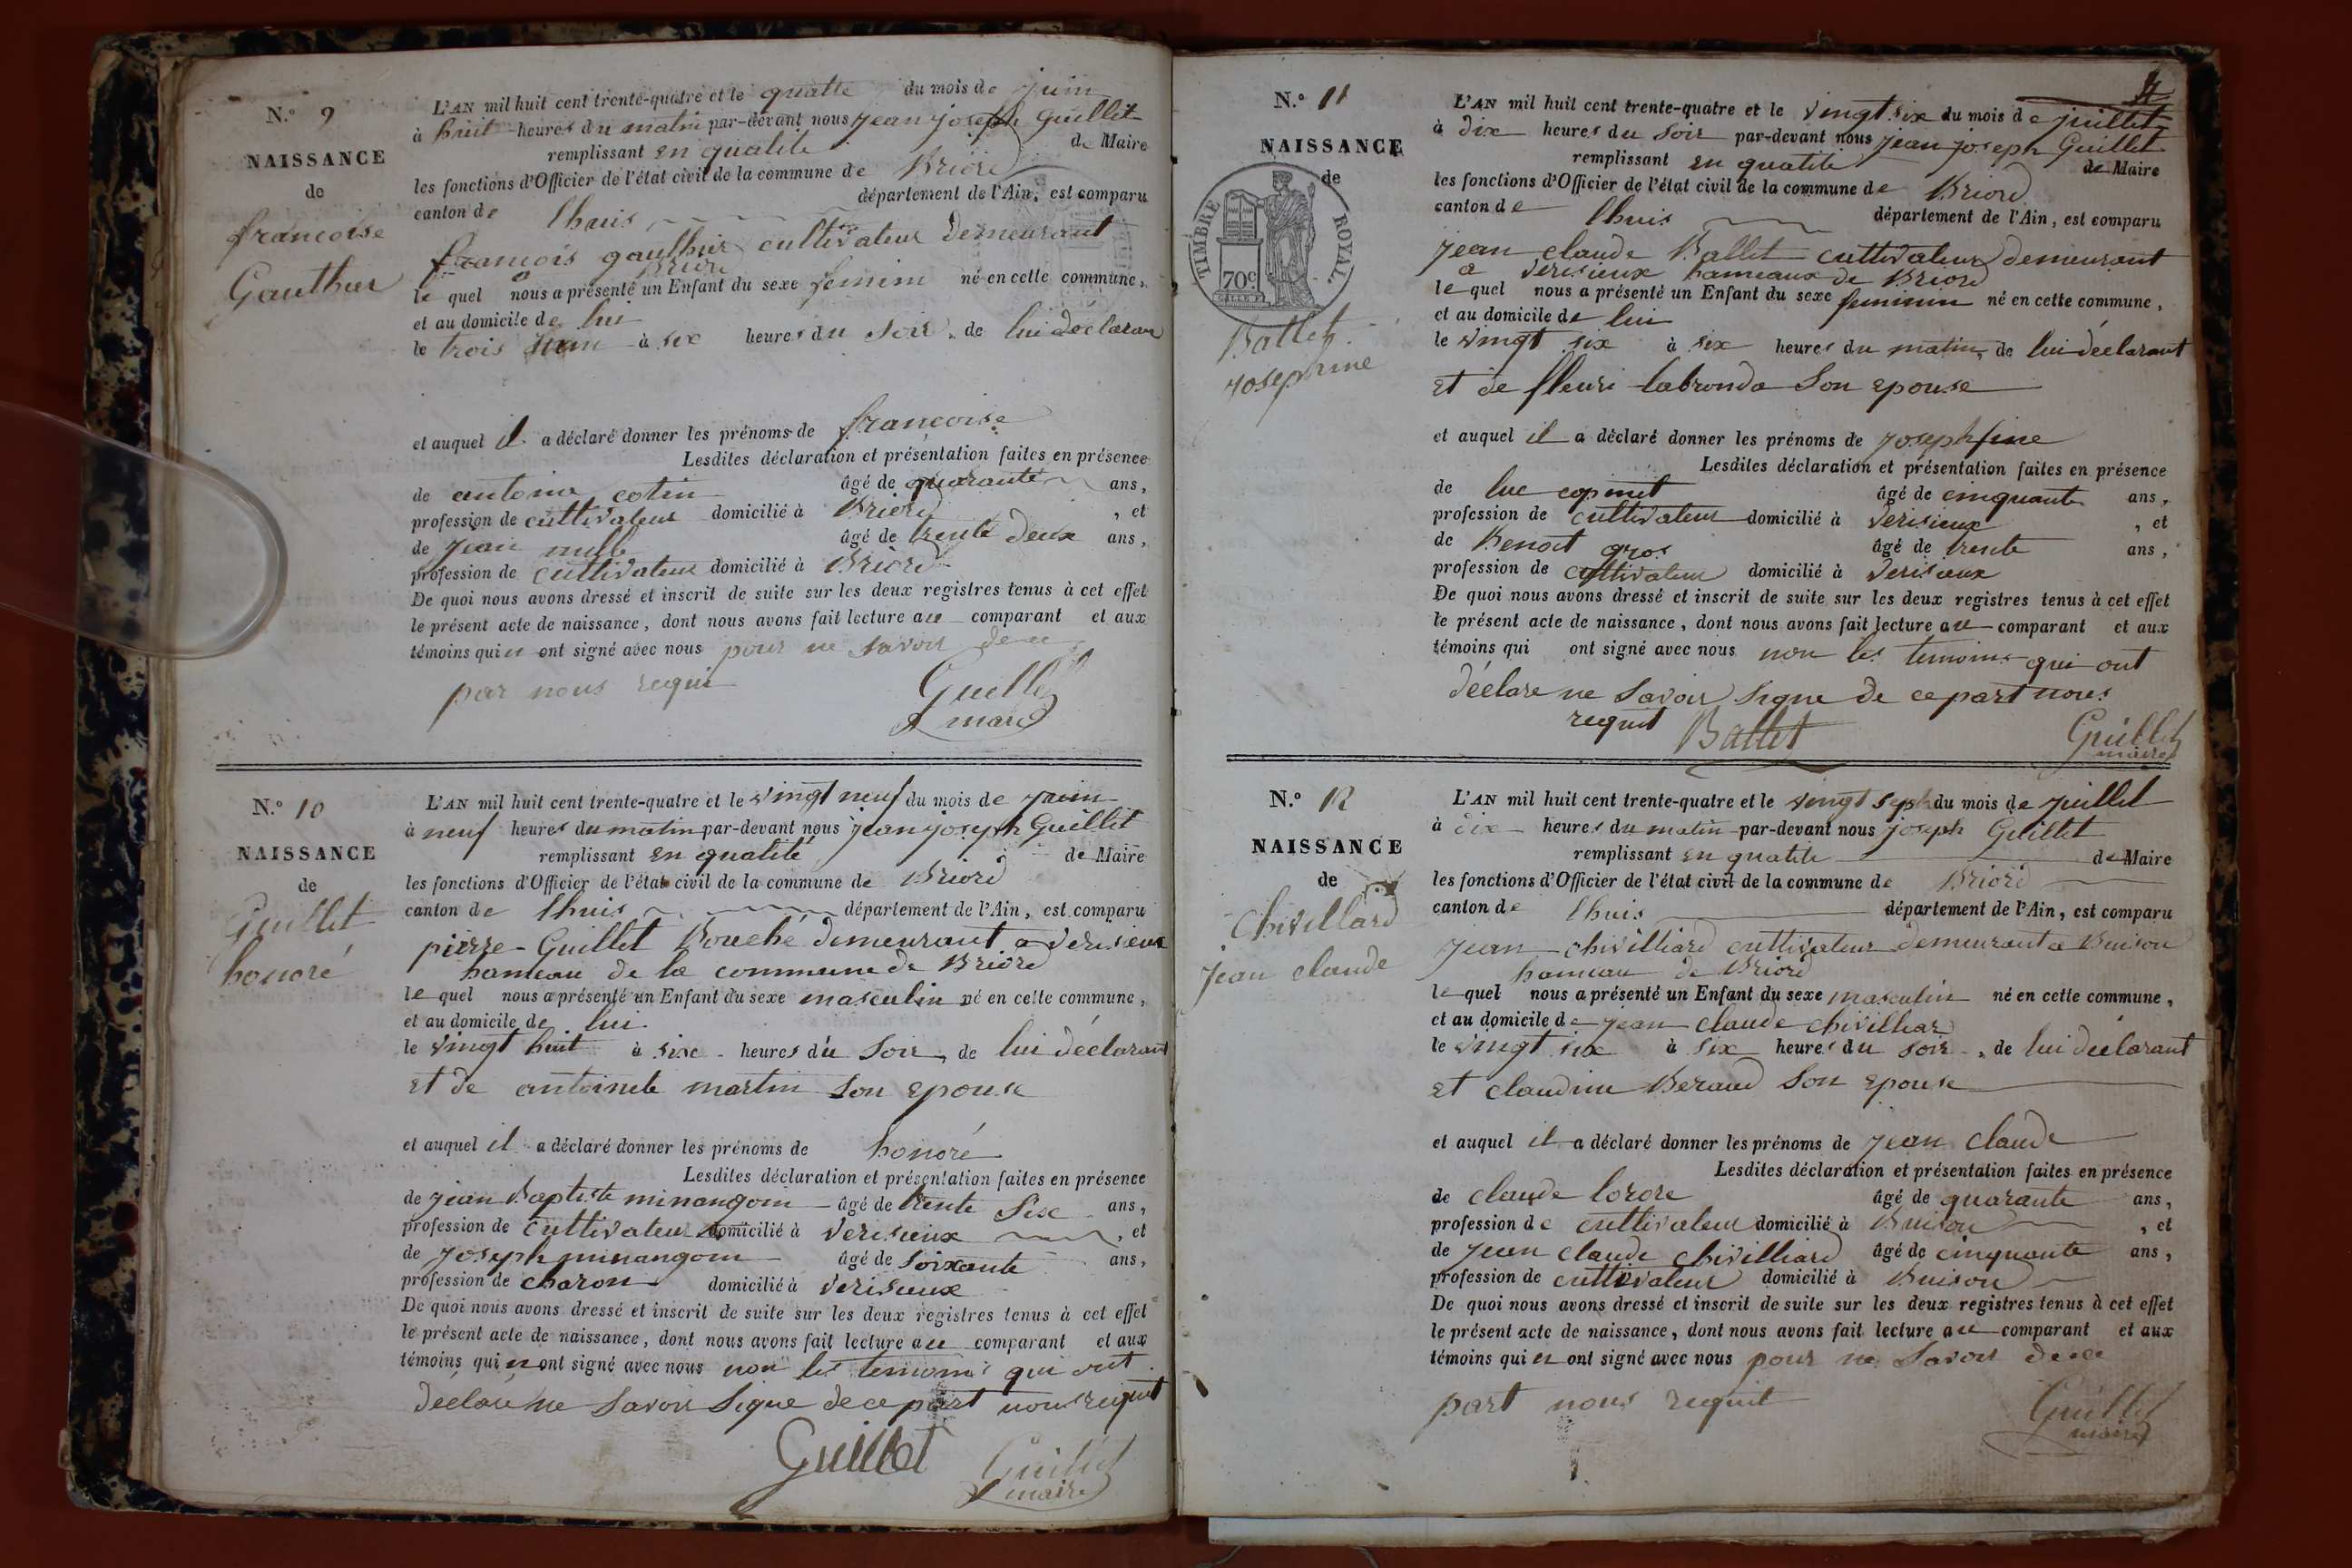 N.º 9
NAISSANCE
de
francoise
Gauthier
L'AN mil huit cent trente-quatre et le quatre du mois de juin
à huit heures du matin par-devant nous jean joseph Guillet
remplissant en qualité de Maire
les fonctions d'Officier de l'état civil de la commune de Briord
canton de lhuis département de l'Ain, est comparu
francois gauthier cultivateur demeurant
a Briord
le quel nous a présenté un Enfant du sexe feminin né en cette commune,
et au domicile de lui
le trois juin à six heures du soir, de lui déclarant
et auquel il a déclaré donner les prénoms de francoise
Lesdites déclaration et présentation faites en présence
de antoine cotin âgé de quarante ans,
profession de cultivateur domicilié à Briord, et
de jean âgé de trente deux ans,
profession de cultivateur domicilié à Briord
De quoi nous avons dressé et inscrit de suite sur les deux registres tenus à cet effet
le présent acte de naissance, dont nous avons fait lecture au comparant et aux
témoins qui n ont signé avec nous pour ne savoir de ce
par nous requi
Guillet
maire
N.º 10
NAISSANCE
de
Guillet
honoré
L'AN mil huit cent trente-quatre et le vingt neuf du mois de juin
à neuf heures du matin par-devant nous jean joseph Guillet
remplissant en qualité de Maire
les fonctions d'Officier de l'état civil de la commune de Briord
canton de lhuis département de l'Ain, est comparu
pierre Guillet Bouché demeurant a verisieux
hameau de la commune de Briord
le quel nous a présenté un Enfant du sexe masculin né en cette commune,
et au domicile de lui
le vingt huit à six heures du soir, de lui déclarant
et de antoinete martin son epouse
et auquel il a déclaré donner les prénoms de honoré
Lesdites déclaration et présentation faites en présence
de jean Baptiste minangoin âgé de trente six ans,
profession de cultivateur domicilié à verisieux, et
de joseph minangoin âgé de soixante ans,
profession de charon domicilié à verisieux
De quoi nous avons dressé et inscrit de suite sur les deux registres tenus à cet effet
le présent acte de naissance, dont nous avons fait lecture au comparant et aux
témoins qui n ont signé avec nous non les temoins qui ont
déclare ne savoir signe de ce part nous requit
Guillet
Guillet
maire
N.º 11
NAISSANCE
de
TIMBRE ROYAL
70c
Ballet
josephine
L'AN mil huit cent trente-quatre et le vingt six du mois de juillet
à dix heures du soir par-devant nous jean joseph Guillet
remplissant en qualité de Maire
les fonctions d'Officier de l'état civil de la commune de Briord
canton de lhuis département de l'Ain, est comparu
jean claude Ballet cultivateur demeurant
a verisieux hameaux de Briord
le quel nous a présenté un Enfant du sexe feminin né en cette commune,
et au domicile de lui
le vingt six à six heures du matin, de lui déclarant
et de fleuri labronda son epouse
et auquel il a déclaré donner les prénoms de josephine
Lesdites déclaration et présentation faites en présence
de luc âgé de cinquante ans,
profession de cultivateur domicilié à verisieux, et
de Benoit gros âgé de trente ans,
profession de cultivateur domicilié à verisieux
De quoi nous avons dressé et inscrit de suite sur les deux registres tenus à cet effet
le présent acte de naissance, dont nous avons fait lecture au comparant et aux
témoins qui ont signé avec nous non les temoins qui ont
déclare ne savoir signe de ce part nous
requit Ballet
Guillet
maire
N.º 12
NAISSANCE
de
Chivillard
jean claude
L'AN mil huit cent trente-quatre et le vingt sept du mois de juillet
à dix heures du matin par-devant nous joseph Guillet
remplissant en qualité de Maire
les fonctions d'Officier de l'état civil de la commune de Briord
canton de lhuis département de l'Ain, est comparu
jean chivilliard cultivateur demeurant a Buison
hameau de Briord
le quel nous a présenté un Enfant du sexe masculin né en cette commune,
et au domicile de jean claude chivilliard
le vingt six à six heures du soir, de lui déclarant
et claudine Beraud son epouse
et auquel il a déclaré donner les prénoms de jean claude
Lesdites déclaration et présentation faites en présence
de claude âgé de quarante ans,
profession de cultivateur domicilié à Buison, et
de jean claude chivilliard âgé de cinquante ans,
profession de cultivateur domicilié à Buison
De quoi nous avons dressé et inscrit de suite sur les deux registres tenus à cet effet
le présent acte de naissance, dont nous avons fait lecture au comparant et aux
témoins qui n ont signé avec nous pour ne savoir de ce
part nous requit
Guillet
maire